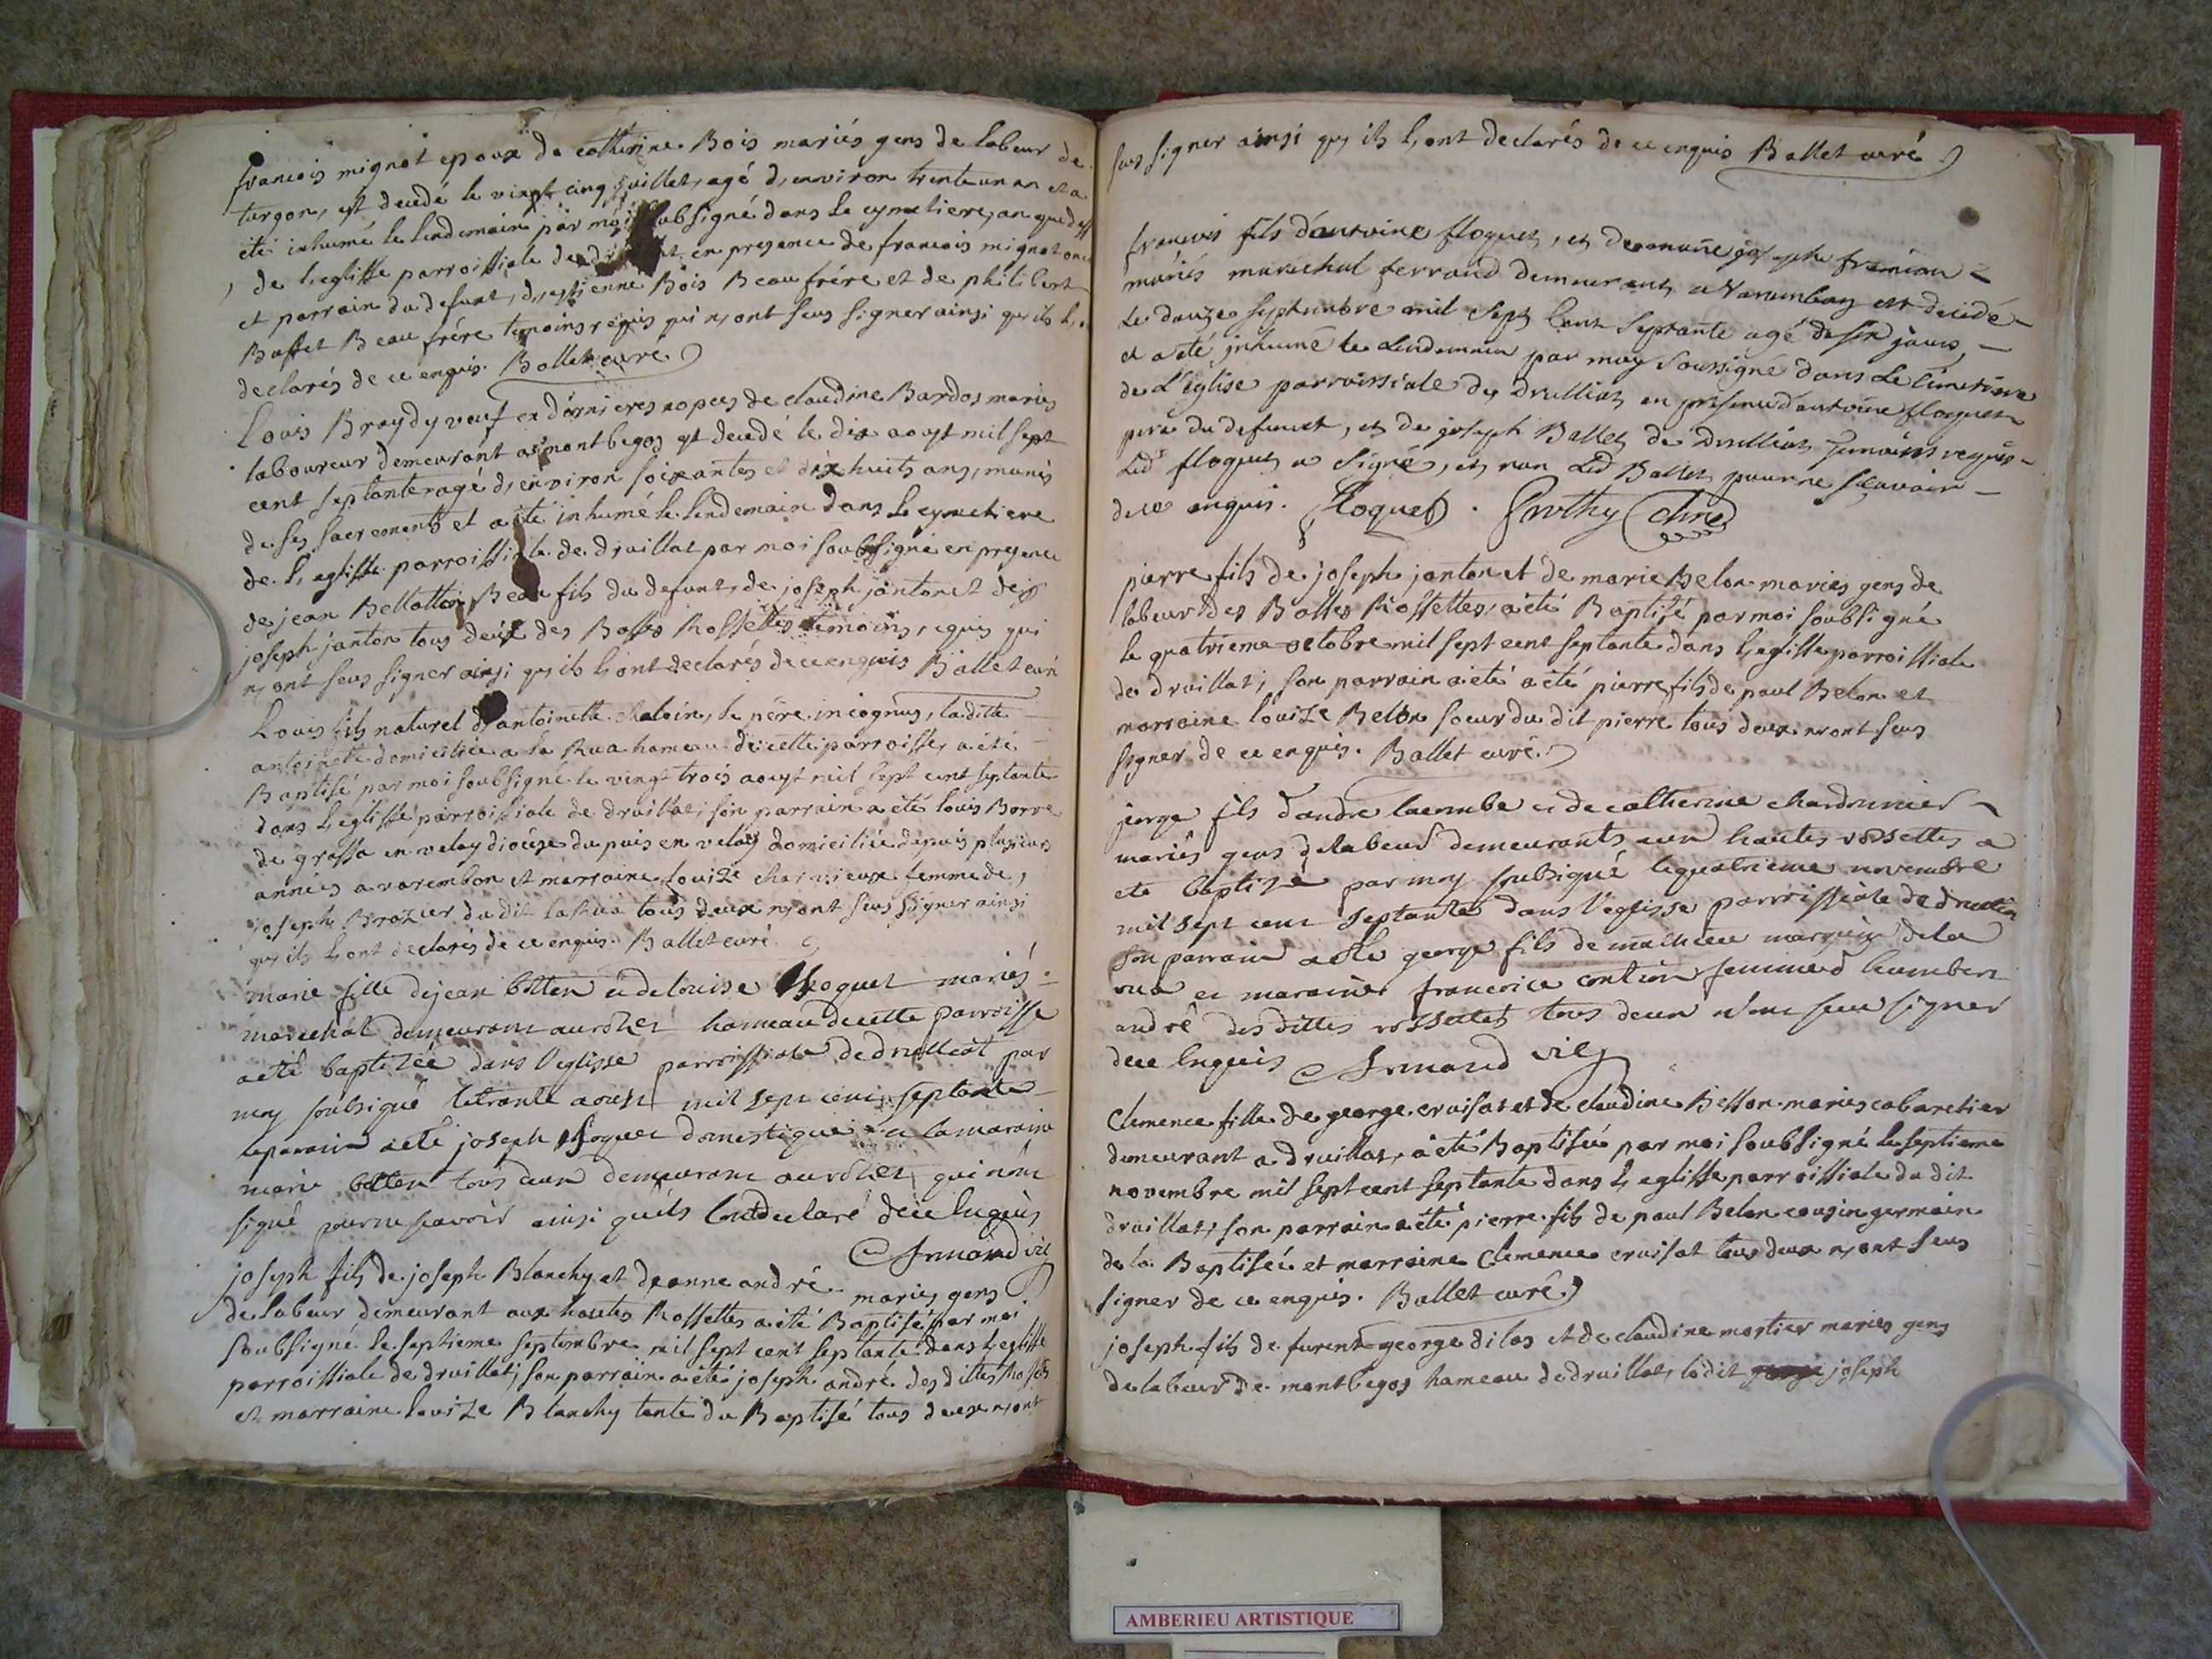 francois mignot epoux de catherine Bois mariés gens de labeur de
turgon, est decedé le vingt cinq juillet, agé d'environ trente un an et a
été inhumé le lendemain par moi soubsigné dans le cymetiere,
de l'eglisse parroissiale de en presence de francois mignot
et parrain du defunt, d'estienne Bois Beau frére et de philibert
Buffet Beau frére temoins requis qui n'ont seus signer ainsi qu'ils l'
declarés de ce enquis. Ballet curé
Louis Braydy veuf en dérnieres nopces de claudine Bardos mariés
laboureur demeurant a montbegos est decedé le dix aoust mil sept
cent septante agé d'environ soixantes et dix huits ans, munis
de ses sacrements et a été inhumé le lendemain dans le cymetiere
de l'eglisse parroissiale de druillat par moi soubsigné en presence
de jean Bellatton Beau fils du defunt, de joseph janton et de
joseph janton tous deux des Basses Rossettes temoins requis qui
n'ont seus signer ainsi qu'ils l'ont declarés de ce enquis Ballet curé
Louis fils naturel d'antoinette, le pére incognus, laditte
antoinette domiciliée a la Rua hameau de cette parroisse, a été
Baptisé par moi soubsigné le vingt trois aoust mil sept cent septante
dans l'eglisse parroissiale de druillat, son parrain a été louis Borve
de grassa en velay diocése du puis en velay domicilié depuis plusieurs
années a varembon et marraine Louize charvieux femme de,
joseph Brazier du dit la Rua tous deux n'ont seus signer ainsi
qu'ils l'ont declarés de ce enquis. Ballet curé
marie fille de jean botten et de louise floquet mariés
marechal demeurant au rolet hameau de cette parroisse
a été baptizéé dans l'eglisse parroissiale de druilliat par
moy soubsigné le trante aoust mil sept cent septante
le parain a été joseph floquet domestique et la maraine
marie botten tous deux demeurant au rolet qui n'ont
signé pour ne sçavoir ainsi qu'ils l'ont declaré de ce enquis
Armand vic
joseph fils de joseph Blanchy et d'eanne andré mariés gens
de labeur demeurant aux hautes Rossettes a été Baptisé par moi
soubsigné le septieme septembre mil sept cent septante dans l'eglisse
parroissiale de druillat, son parrain a été joseph andré des dittes Rossettes
et marraine Louize Blanchy tante du Baptisé tous deux n'ont
seus signer ainsi qu'ils l'ont declarés de ce enquis Ballet curé
francois fils d'antoine floquet, et de joseph
mariés marechal ferrand demeurants a Varambon est decedé
le douze septembre mil sept cent septante agé de six jours
et a été inhumé le lendemain par moy soussigné dans le cimetiere
de l'église parroissiale de druilliat, en presence d'antoine floquet
pere du defunct, et de joseph Ballet de druilliat temoins requis
led. floquet a signé, et non led Ballet pour ne sçavoir
de ce enquis. floquet.
pierre fils de joseph janton et de marie Belon mariés gens de
labeur des Basses Rossettes, a été Baptisé par moi soubsigné
le quatrieme octobre mil sept cent septante dans l'eglisse parroissiale
de druillat, son parrain a été a été pierre fils de paul Belon et
marraine louize Belon soeur du dit pierre tous deux n'ont seus
signer de ce enquis. Ballet curé
jorge fils d'andre lacombe et de catherine chardonnier
mariés gens de labeur demeurants aux hautes rossettes a
eté baptizé par moy soubsigné le quatrieme novembre
mil sept cent septante dans l'eglisse parroissiale de druillat
son parrain a été george fils de mathieu marguin de la
rua et maraine francoise contion femme d humbert
andré des dittes rossettes tous deux n'ont seus signer
de ce enquis Armand vic
Clemence fille de george cruisat et de claudine Besson mariés cabaretier
demeurant a druillat, a été Baptisée par moi soubsigné le septieme
novembre mil sept cent septante dans l'eglisse parroissiale du dit
druillat, son parrain a été pierre fils de paul Belon cousin germain
de la Baptisée et marraine Clemence cruisat tous deux n'ont seus
signer de ce enquis. Ballet curé
joseph fils de furent george dilas et de claudine mortier mariés gens
de labeur de montbegos hameau de druillat, ledit joseph
AMBERIEU ARTISTIQUE